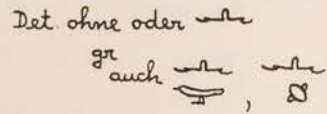 Det. ohne oder 𓂜
gr auch 𓂜 , 𓂜